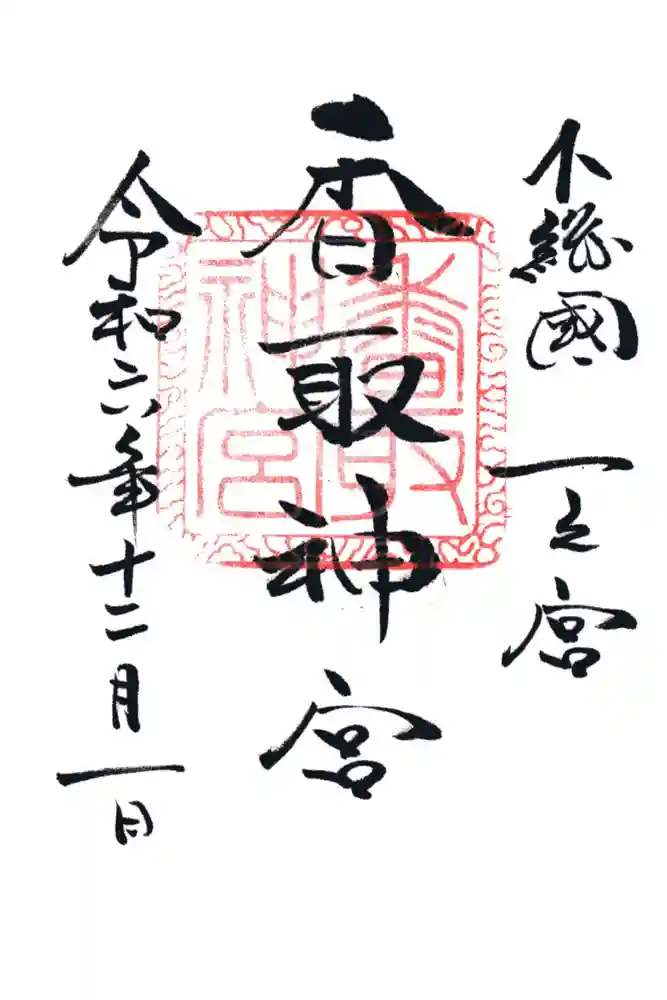 下総國一之宮
香取神宮
香取神宮
令和六年十二月一日